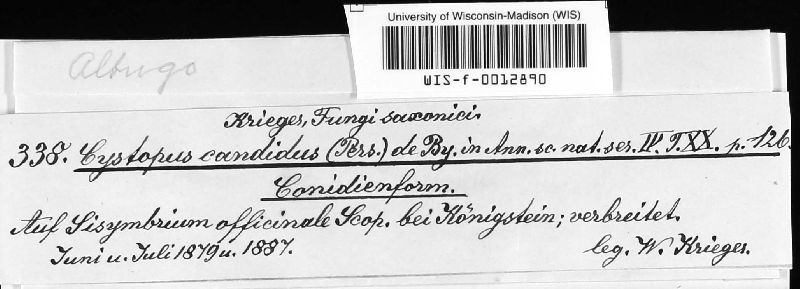 University of Wisconsin-Madison (WIS)
WIS-f-0012890
Albugo
Krieger, Fungi saxonici.
338. Cystopus candidus (Pers.) de By. in Ann. sc. nat. ser. IV. T. XX. p. 126.
Conidienform.
Auf Sisymbrium officinale Scop. bei Königstein; verbreitet.
Juni u. Juli 1879 u. 1887.
leg. W. Krieger.